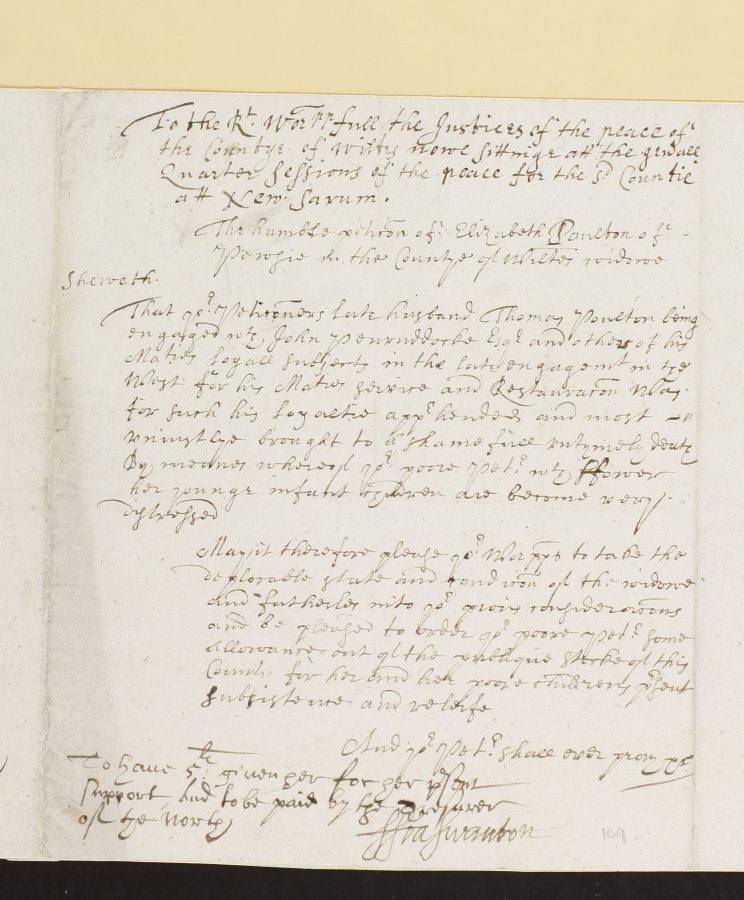 To the Rt. Worpp:full the Justices of the peace of
the Countye of Wiltes nowe sittinge att the genall
Quarter Sessions of the peace for the sd. Countie
att New Sarum.
The humble peticon of Elizabeth Poulton of
Pewsie in the Countye of Wiltes widowe
Sheweth.
That yor. Peticoners late husband Thomas Poulton being
engaged wth John Penruddocke Esqr and other of his
Maties loyall subjects in the late engagement in the
West for his Maties service and Restauracon Was
for such his loyaltie apphended and most
uniustlye brought to a shamefull untymely death
By meanes whereof yor. poore Petr. wth ffower
her younge infant Children are become very
distressed
Mayit therefore please yor. Worpps to take the
deplorable state and condicon of the widowe
and fatherles into yor. pious consideracons
and be pleased to order yor. poore Petr. some
allowance out of the publique stocke of this
County for her and her poore childrens psent
subsistence and releife
And yor Petr. shall ever pray &c
To have 5li given her for her psent
support And to be paid by the Tresurer
of the North
ffra Swanton
109